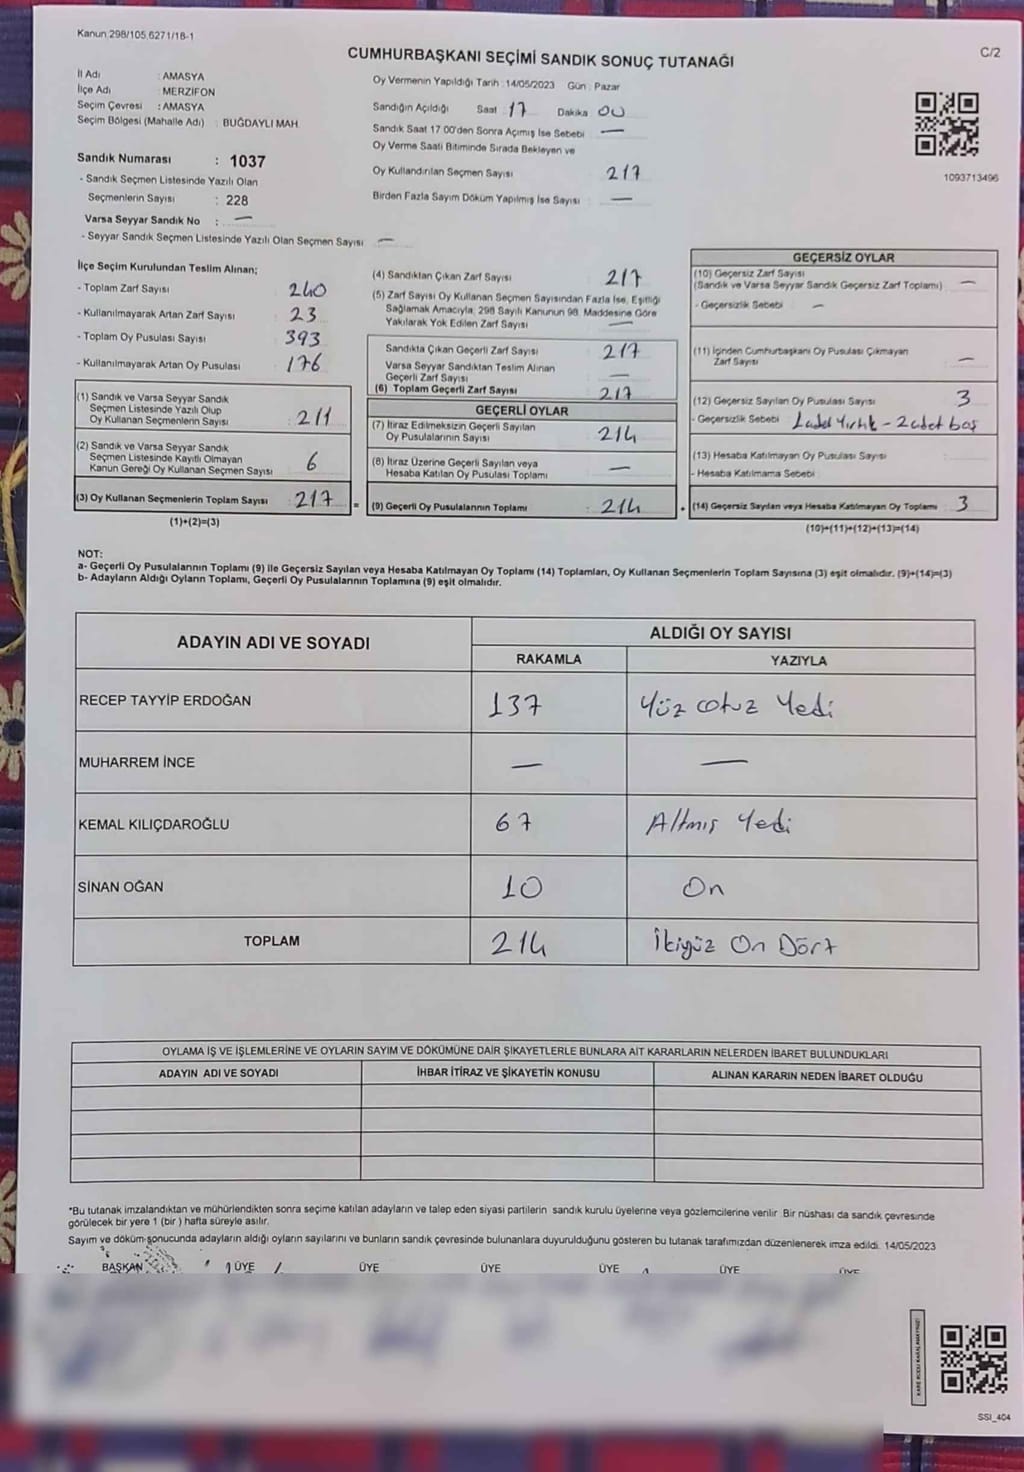 Kanun 298/105,6271/18-1
C/2
CUMHURBAŞKANI SEÇİMİ SANDIK SONUÇ TUTANAĞI
İl Adı : AMASYA
İlçe Adı : MERZİFON
Seçim Çevresi : AMASYA
Seçim Bölgesi (Mahalle Adı) : BUĞDAYLI MAH.
Sandık Numarası : 1037
- Sandık Seçmen Listesinde Yazılı Olan
Seçmenlerin Sayısı : 228
Varsa Seyyar Sandık No : —
- Seyyar Sandık Seçmen Listesinde Yazılı Olan Seçmen Sayısı —
Oy Vermenin Yapıldığı Tarih : 14/05/2023 Gün : Pazar
Sandığın Açıldığı Saat 17 Dakika 00
Sandık Saat 17.00'den Sonra Açımış İse Sebebi —
Oy Verme Saati Bitiminde Sırada Bekleyen ve
Oy Kullandırılan Seçmen Sayısı 217
Birden Fazla Sayım Döküm Yapılmış İse Sayısı —
1093713496
İlçe Seçim Kurulundan Teslim Alınan;
- Toplam Zarf Sayısı 240
- Kullanılmayarak Artan Zarf Sayısı 23
- Toplam Oy Pusulası Sayısı 393
- Kullanılmayarak Artan Oy Pusulası 176
(1) Sandık ve Varsa Seyyar Sandık
Seçmen Listesinde Yazılı Olup
Oy Kullanan Seçmenlerin Sayısı : 211
(2) Sandık ve Varsa Seyyar Sandık
Seçmen Listesinde Kayıtlı Olmayan
Kanun Gereği Oy Kullanan Seçmen Sayısı 6
(3) Oy Kullanan Seçmenlerin Toplam Sayısı : 217 =
(1)+(2)=(3)
(4) Sandıktan Çıkan Zarf Sayısı 217
(5) Zarf Sayısı Oy Kullanan Seçmen Sayısından Fazla İse, Eşitliği
Sağlamak Amacıyla, 298 Sayılı Kanunun 98. Maddesine Göre
Yakılarak Yok Edilen Zarf Sayısı —
Sandıkta Çıkan Geçerli Zarf Sayısı 217
Varsa Seyyar Sandıktan Teslim Alınan
Geçerli Zarf Sayısı —
(6) Toplam Geçerli Zarf Sayısı 217
GEÇERLİ OYLAR
(7) İtiraz Edilmeksizin Geçerli Sayılan
Oy Pusulalarının Sayısı 214
(8) İtiraz Üzerine Geçerli Sayılan veya
Hesaba Katılan Oy Pusulası Toplamı —
(9) Geçerli Oy Pusulalarının Toplamı 214 +
GEÇERSİZ OYLAR
(10) Geçersiz Zarf Sayısı
(Sandık ve Varsa Seyyar Sandık Geçersiz Zarf Toplamı) —
- Geçersizlik Sebebi —
(11) İçinden Cumhurbaşkanı Oy Pusulası Çıkmayan
Zarf Sayısı —
(12) Geçersiz Sayılan Oy Pusulası Sayısı 3
- Geçersizlik Sebebi 1 adet Yırtık - 2 adet boş
(13) Hesaba Katılmayan Oy Pusulası Sayısı
- Hesaba Katılmama Sebebi
(14) Geçersiz Sayılan veya Hesaba Katılmayan Oy Toplamı 3
(10)+(11)+(12)+(13)=(14)
NOT:
a- Geçerli Oy Pusulalarının Toplamı (9) ile Geçersiz Sayılan veya Hesaba Katılmayan Oy Toplamı (14) Toplamları, Oy Kullanan Seçmenlerin Toplam Sayısına (3) eşit olmalıdır. (9)+(14)=(3)
b- Adayların Aldığı Oyların Toplamı, Geçerli Oy Pusulalarının Toplamına (9) eşit olmalıdır.
ADAYIN ADI VE SOYADI ALDIĞI OY SAYISI
RAKAMLA YAZIYLA
RECEP TAYYİP ERDOĞAN 137 Yüz otuz Yedi
MUHARREM İNCE — —
KEMAL KILIÇDAROĞLU 67 Altmış Yedi
SİNAN OĞAN 10 On
TOPLAM 214 İkiyüz On Dört
OYLAMA İŞ VE İŞLEMLERİNE VE OYLARIN SAYIM VE DÖKÜMÜNE DAİR ŞİKAYETLERLE BUNLARA AİT KARARLARIN NELERDEN İBARET BULUNDUKLARI
ADAYIN ADI VE SOYADI İHBAR İTİRAZ VE ŞİKAYETİN KONUSU ALINAN KARARIN NEDEN İBARET OLDUĞU
*Bu tutanak imzalandıktan ve mühürlendikten sonra seçime katılan adayların ve talep eden siyasi partilerin sandık kurulu üyelerine veya gözlemcilerine verilir. Bir nüshası da sandık çevresinde
görülecek bir yere 1 (bir) hafta süreyle asılır.
Sayım ve döküm sonucunda adayların aldığı oyların sayılarını ve bunların sandık çevresinde bulunanlara duyurulduğunu gösteren bu tutanak tarafımızdan düzenlenerek imza edildi. 14/05/2023
BAŞKAN ÜYE ÜYE ÜYE ÜYE ÜYE ÜYE
SSI_404